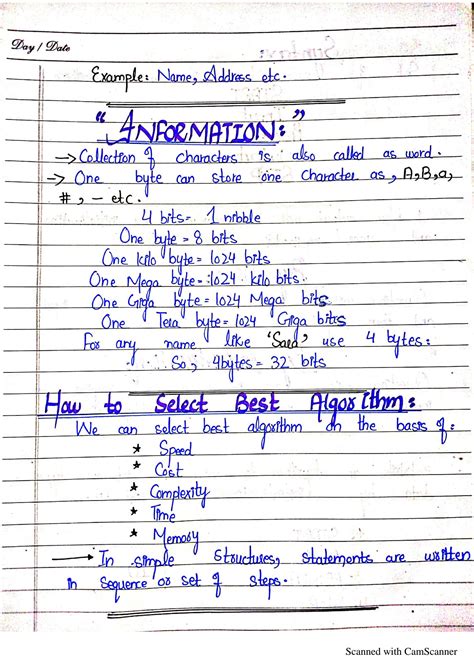 Day / Date
Example: Name, Address etc.
"INFORMATION:"
→ Collection of characters is also called as word.
→ One byte can store one character as, A, B, a,
#, - etc.
4 bits = 1 nibble
One byte = 8 bits
One kilo byte = 1024 bits
One Mega byte = 1024 kilo bits.
One Giga byte = 1024 Mega bits
One Tera byte = 1024 Giga bits
For any name like 'Saad' use 4 bytes:
So, 4bytes = 32 bits
How to Select Best Algorithm:
We can select best algorithm on the basis of:
* Speed
* Cost
* Complexity
* Time
* Memory
→ In simple structures, statements are written
in sequence or set of steps.
Scanned with CamScanner